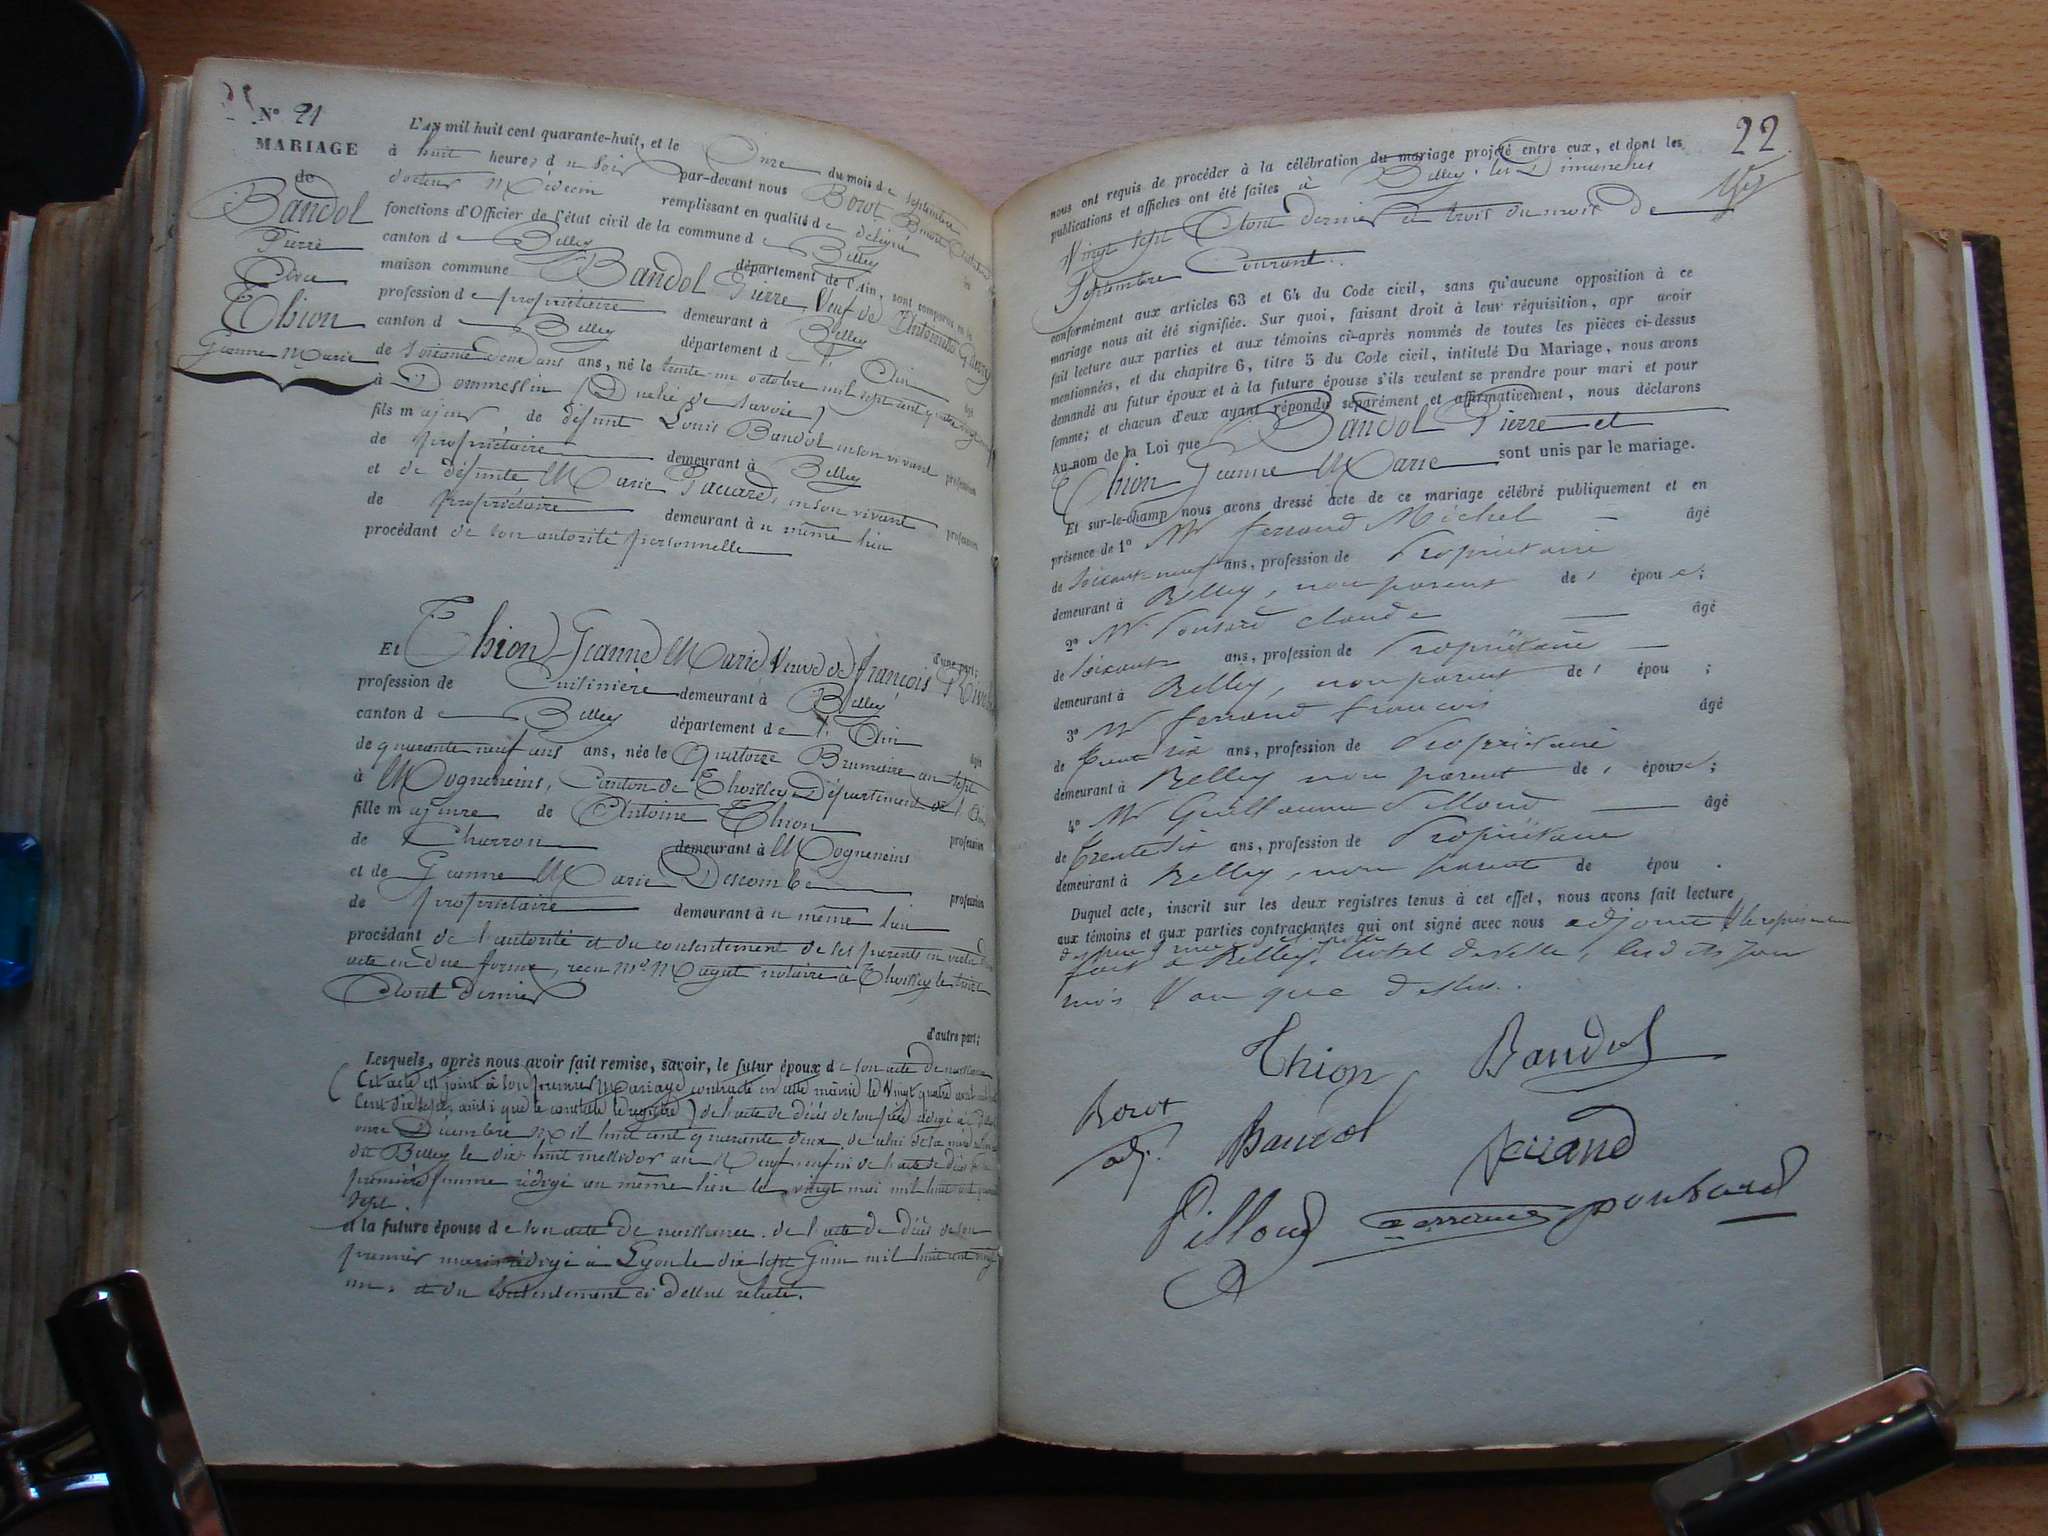 N° 21
MARIAGE
de
Bandol
Pierre
Avec
Thion
Jeanne Marie
L'an mil huit cent quarante-huit, et le Onze du mois de Septembre
à huit heures du soir par-devant nous Borot Benoit
docteur Médecin remplissant en qualité de délégué les
fonctions d'Officier de l'état civil de la commune de Belley
canton de Belley département de l'Ain, sont comparus en la
maison commune Bandol Pierre, Veuf de Antoinette
profession de propriétaire demeurant à Belley
canton de Belley département de l'Ain âgé
de soixante deux ans ans, né le trente un octobre mil sept cent quatre vingt
à Dommessin (Duché de Savoie)
fils majeur de défunt Louis Bandol en son vivant profession
de propriétaire demeurant à Belley
et de défunte Marie Paccard, en son vivant profession
de propriétaire demeurant à u même lieu
procédant de son autorité personnelle
d'une part;
Et Thion Jeanne Marie Veuve de François
profession de Cuisinière demeurant à Belley
canton de Belley département de l'Ain âgée
de quarante neuf ans ans, née le Quatorze Brumaire an sept
à Mogneneins, Canton de Thoissey Département de l'Ain
fille majeure de Antoine Thion profession
de Charron demeurant à Mogneneins
et de Jeanne Marie Descombe profession
de propriétaire demeurant à u même lieu
procédant de l'autorité et du consentement de ses parents en vertu d'un
acte en due forme, recu Me Magat notaire à Thoissey le treize
Aout dernier
d'autre part;
Lesquels, après nous avoir fait remise, savoir, le futur époux de son acte de naissance
(Cet acte est joint à son premier Mariage contracté en cette mairie le Vingt quatre
Cent dix sept, ainsi que le constate le registre) de l'acte de décès de son père rédigé à
onze Décembre Mil huit cent quarante deux, de celui de sa mère
dit Belley le dix huit messidor an Neuf enfin de l'acte de décès de sa
première femme rédigé au même lieu le vingt mai mil huit cent quarante
sept.
et la future épouse de son acte de naissance. de l'acte de décès de son
premier mari rédigé à Lyon le dix sept Juin mil huit cent vingt
un, et du consentement ci dessus relaté.
22
nous ont requis de procéder à la célébration du mariage projeté entre eux, et dont les
publications et affiches ont été faites à Belley. les Dimanches
Vingt sept Aout dernier et trois du mois de
Septembre Courant.
conformément aux articles 63 et 64 du Code civil, sans qu'aucune opposition à ce
mariage nous ait été signifiée. Sur quoi, faisant droit à leur réquisition, apr avoir
fait lecture aux parties et aux témoins ci-après nommés de toutes les pièces ci-dessus
mentionnées, et du chapitre 6, titre 5 du Code civil, intitulé Du Mariage, nous avons
demandé au futur époux et à la future épouse s'ils veulent se prendre pour mari et pour
femme; et chacun d'eux ayant répondu séparément et affirmativement, nous déclarons
Au nom de la Loi que Bandol Pierre et
Thion Jeanne Marie sont unis par le mariage.
Et sur-le-champ nous avons dressé acte de ce mariage célébré publiquement et en
présence de 1° Mr ferrand Michel âgé
de soixante neuf ans, profession de Propriétaire
demeurant à Belley, non parent de s époux;
2° Mr Ponsard claude âgé
de soixante ans, profession de Propriétaire
demeurant à Belley, non parent de s épou ;
3° Mr ferrand francois âgé
de trente six ans, profession de Propriétaire
demeurant à Belley non parent de s époux;
4° Mr Guillaume Pilloud âgé
de trente six ans, profession de Propriétaire
demeurant à Belley, non parent de épou .
Duquel acte, inscrit sur les deux registres tenus à cet effet, nous avons fait lecture
aux témoins et aux parties contractantes qui ont signé avec nous adjoint
fait à Belley, hotel deville, lesdits jour
mois & an que dessus.
Thion Bandol
Borot
adj. Bandol ferrand
Pilloud ferrand ponsard